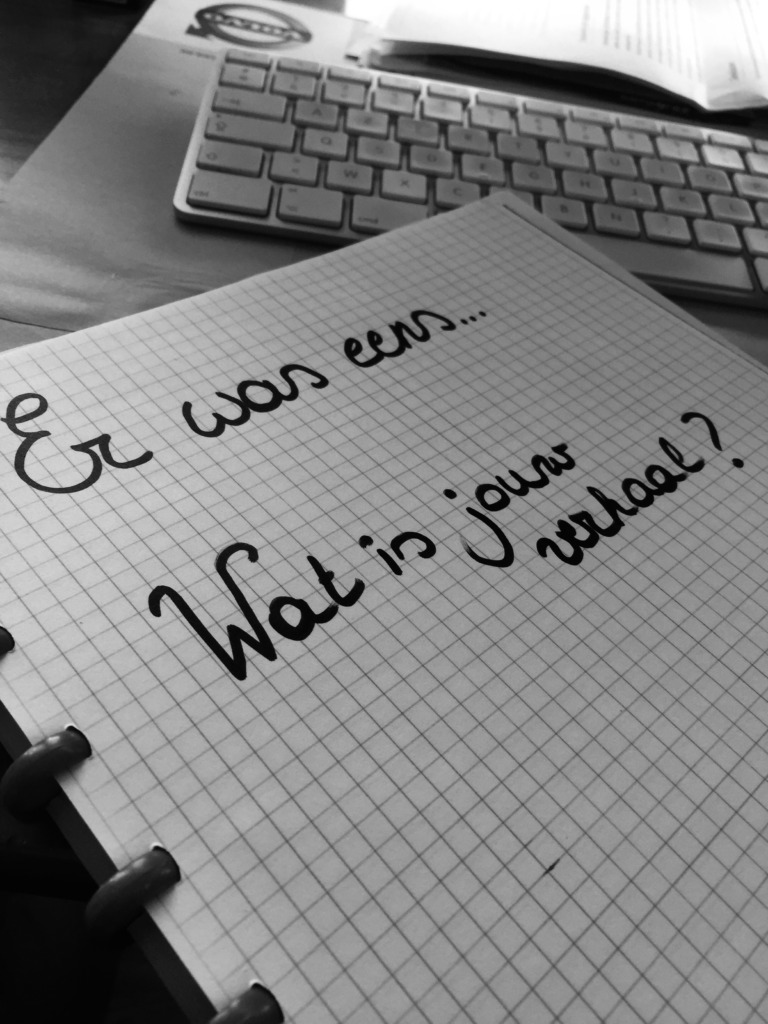 VOLVO
Er was eens...
Wat is jouw
verhaal?